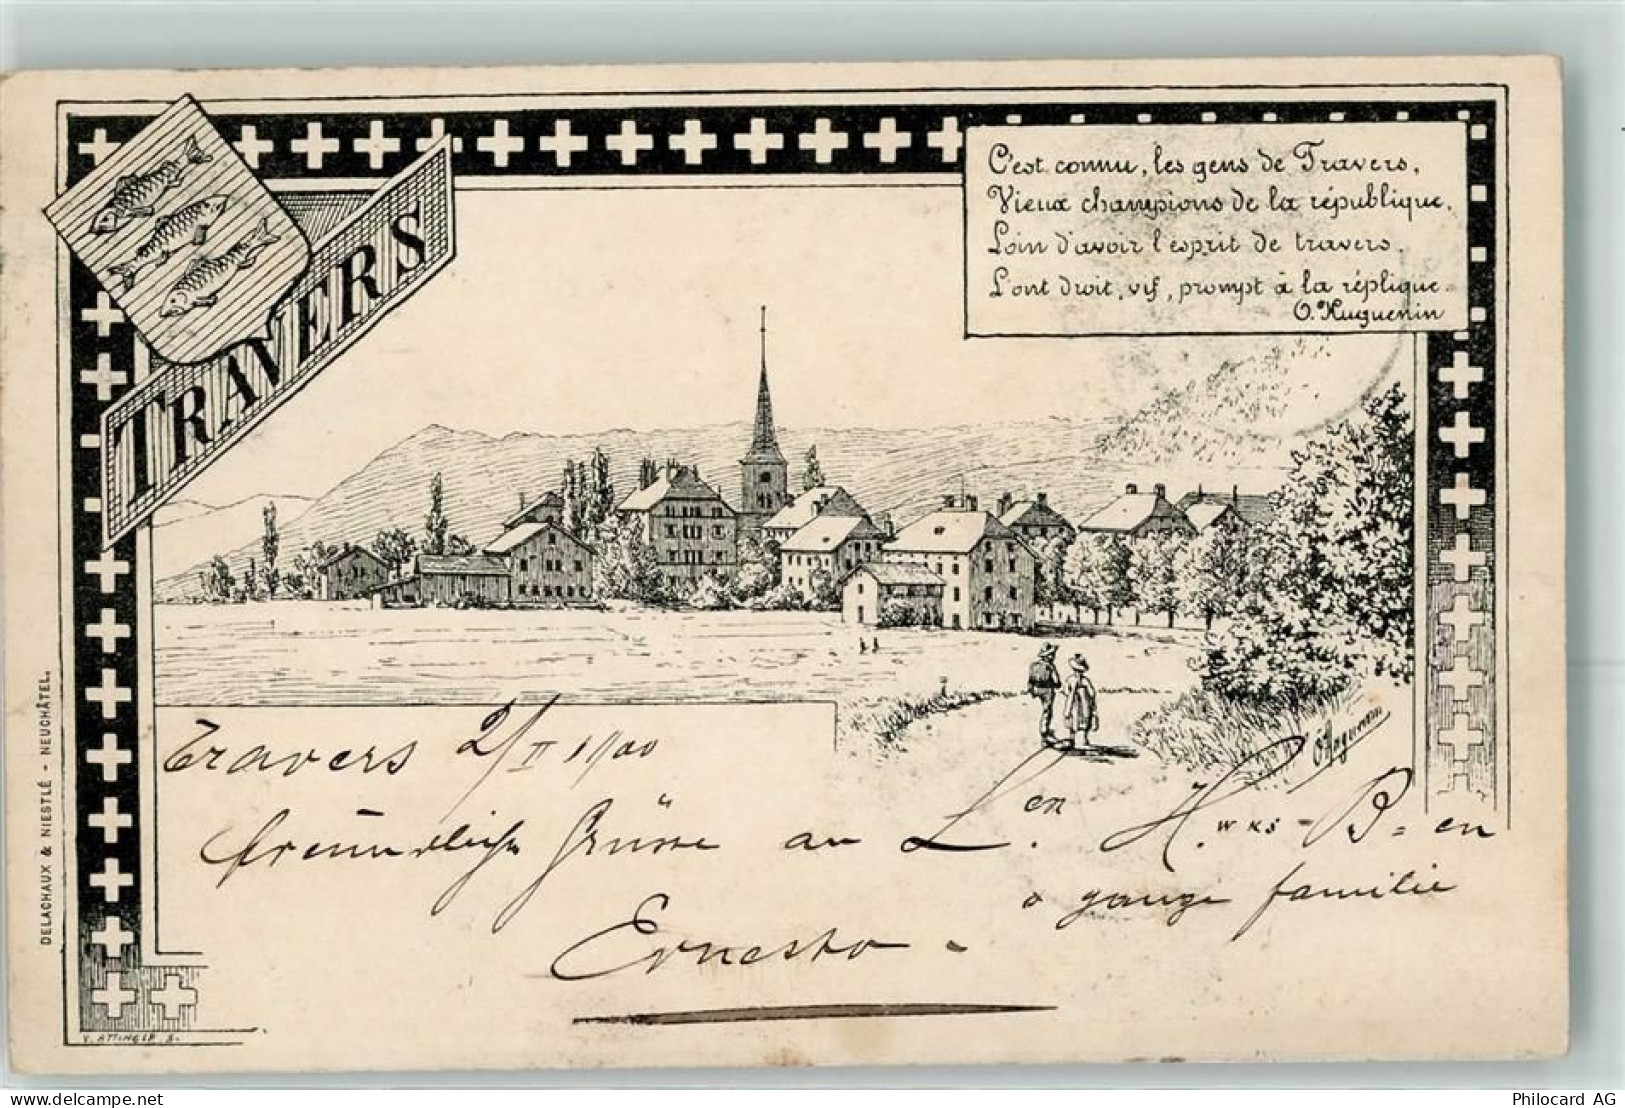 TRAVERS
C'est connu, les gens de Travers,
Vieux champions de la république,
Loin d'avoir l'esprit de travers,
L'ont droit, vif, prompt à la réplique.
O. Huguenin
O. Huguenin
Travers 2/II 1900
freundliche Grüsse an L. en H. wks - B = en
& ganze familie
Ernesto -
DELACHAUX & NIESTLÉ - NEUCHÂTEL.
V. ATTINGER. S.
delcampe.net
Philocard AG